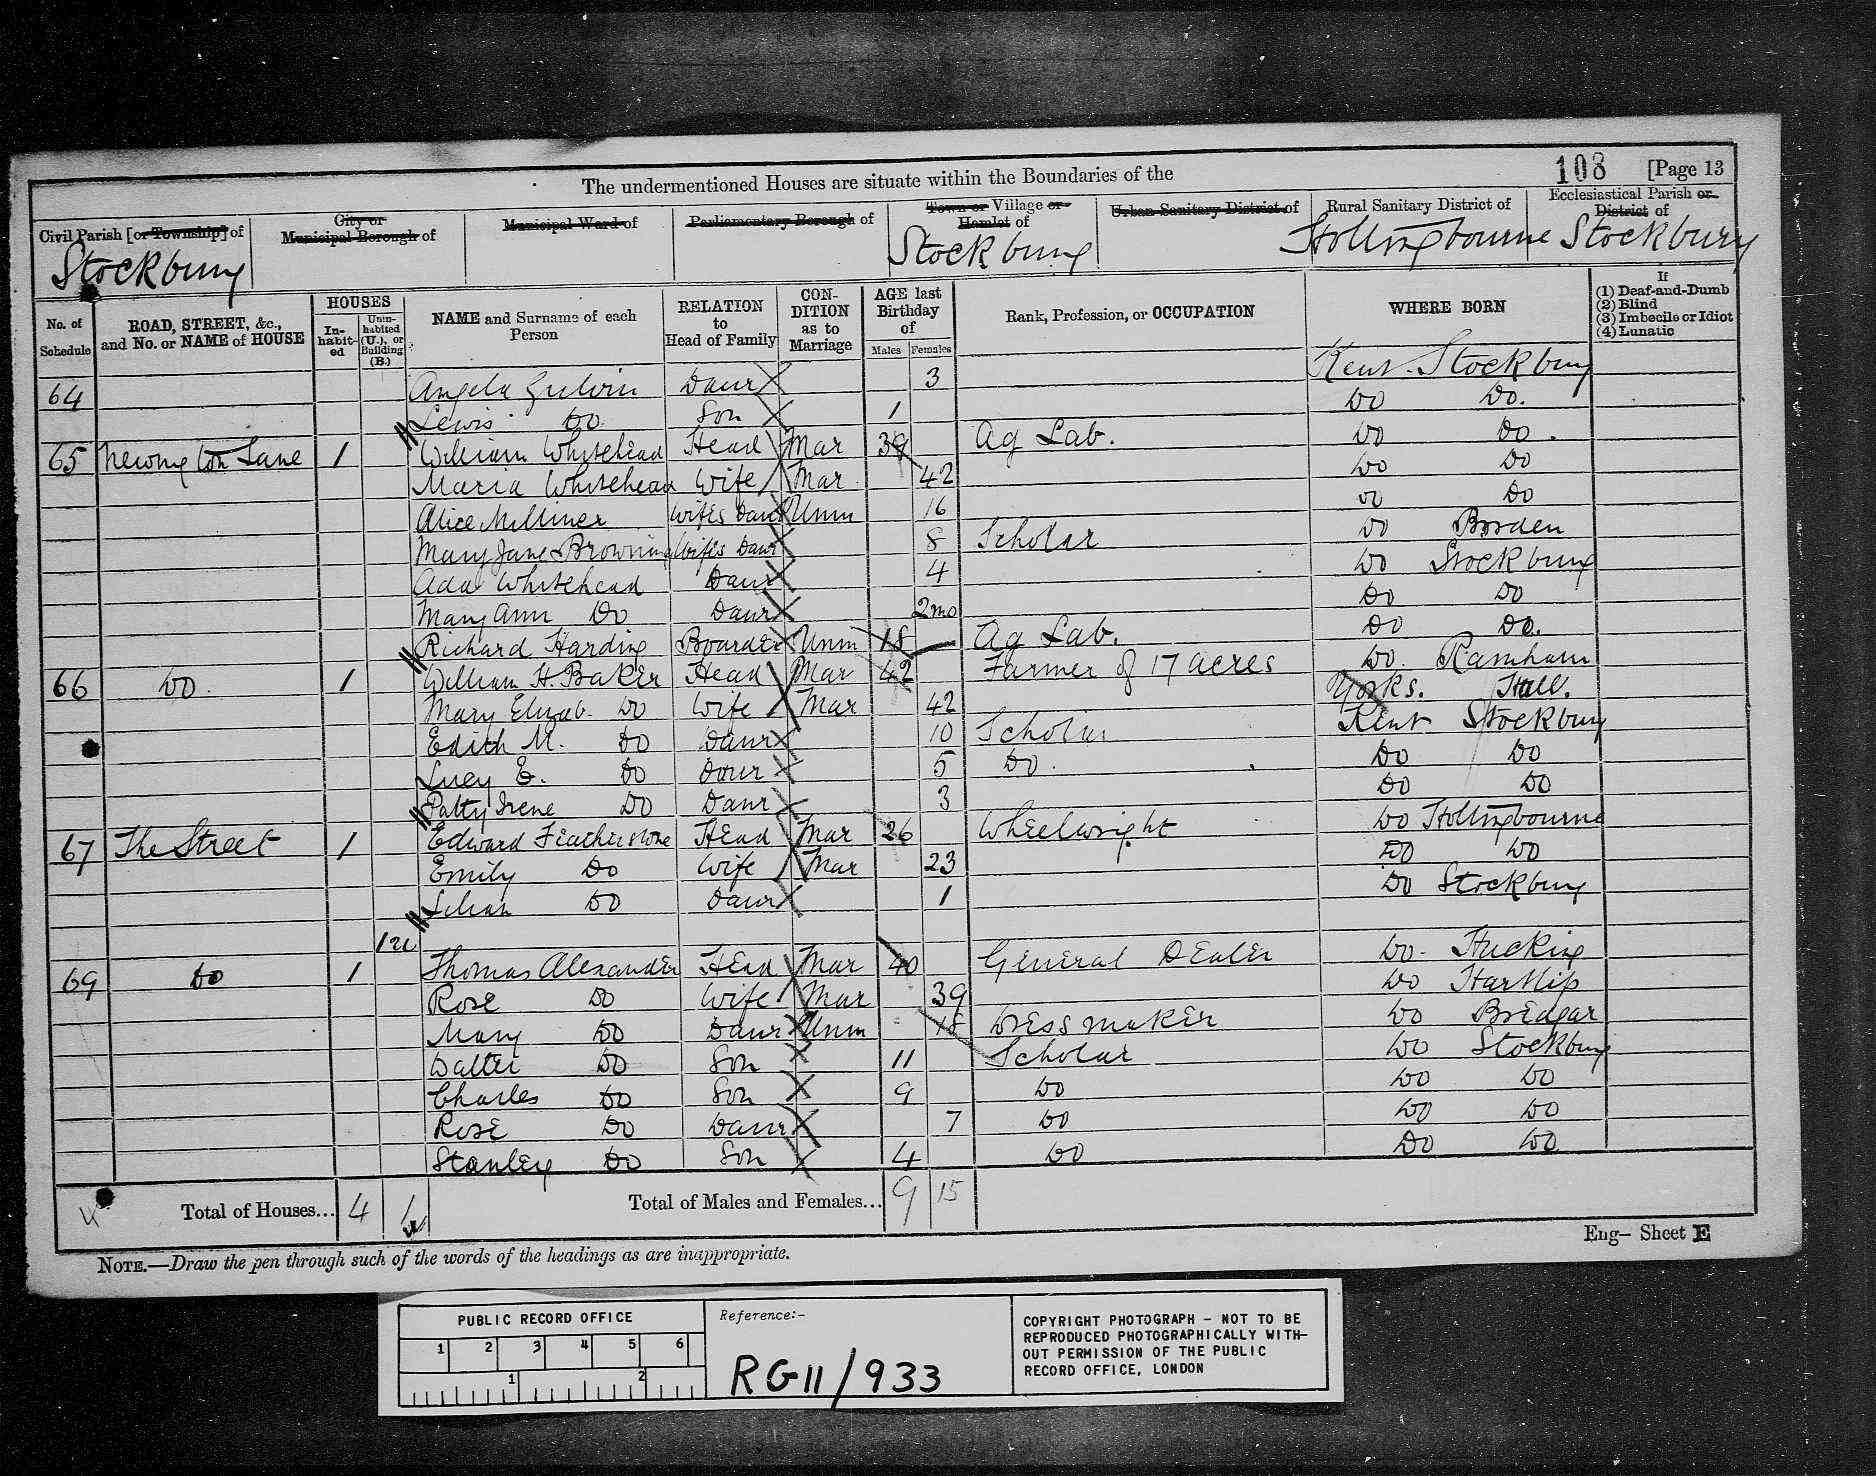 108 [Page 13
The undermentioned Houses are situate within the Boundaries of the
Civil Parish [or Township] of
City or Municipal Borough of
Municipal Ward of
Parliamentary Borough of
Town or Village or Hamlet of
Urban Sanitary District of
Rural Sanitary District of
Ecclesiastical Parish or District of
Stockbury Stockbury Hollingbourne Stockbury
No. of Schedule
ROAD, STREET, &c., and No. or NAME of HOUSE
HOUSES
In-habit-ed
Unin-habited (U.), or Building (B.)
NAME and Surname of each Person
RELATION to Head of Family
CON-DITION as to Marriage
AGE last Birthday of
Males Females
Rank, Profession, or OCCUPATION
WHERE BORN
If
(1) Deaf-and-Dumb
(2) Blind
(3) Imbecile or Idiot
(4) Lunatic
64 Angela Gulvin Daur 3 Kent Stockbury
Lewis Do Son 1 Do Do.
65 Newington Lane 1 William Whitehead Head Mar 39 Ag Lab. Do Do.
Maria Whitehead Wife Mar 42 Do Do
Alice Milliner Wife's Daur Unm 16 Do Do
Mary Jane Browning Wife's Daur 8 Scholar Do Borden
Ada Whitehead Daur 4 Do Stockbury
Mary Ann Do Daur 2mo Do Do
Richard Harding Boarder Unm 18 Ag Lab. Do Do.
66 Do. 1 William H. Baker Head Mar 42 Farmer of 17 acres Do. Rainham
Mary Elizab. Do Wife Mar 42 Yorks. Hull.
Edith M. Do Daur 10 Scholar Kent Stockbury
Lucy E. Do Daur 5 Do. Do Do
Patty Irene Do Daur 3 Do Do
67 The Street 1 Edward Featherstone Head Mar 26 Wheelwright Do Hollingbourne
Emily Do Wife Mar 23 Do Do
Lilian Do Daur 1 Do Stockbury
1 u
69 Do 1 Thomas Alexander Head Mar 40 General Dealer Do. Hucking
Rose Do Wife Mar 39 Do Hartlip
Mary Do Daur Unm 18 Dressmaker Do Bredgar
Walter Do Son 11 Scholar Do Stockbury
Charles Do Son 9 Do Do Do
Rose Do Daur 7 Do Do Do
Stanley Do Son 4 Do Do Do
Total of Houses... 4 Total of Males and Females... 9 15
Eng— Sheet E
NOTE.—Draw the pen through such of the words of the headings as are inappropriate.
PUBLIC RECORD OFFICE
1 2 3 4 5 6
1 2
Reference:-
RG11/933
COPYRIGHT PHOTOGRAPH - NOT TO BE
REPRODUCED PHOTOGRAPHICALLY WITH-
OUT PERMISSION OF THE PUBLIC
RECORD OFFICE, LONDON